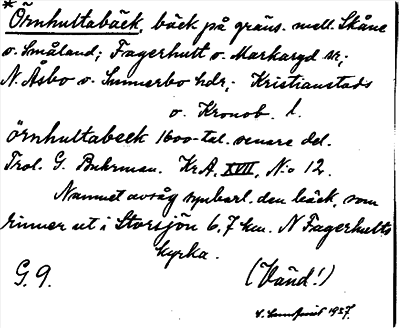 * Örnhultabäck, bäck på gräns. mell. Skåne
o. Småland; Fagerhult o. Markaryd sr;
N. Åsbo o. Sunnerbo hdr; Kristianstads
o. Kronob. l.
örnhultabeck 1600-tal. senare del.
Trol. G. Buhrman. KrA, XVII, No 12.
Namnet avsåg synbarl. den bäck, som
rinner ut i Storsjön 6,7 km. N Fagerhults
kyrka.
G. 9.
(Vänd!)
1937.